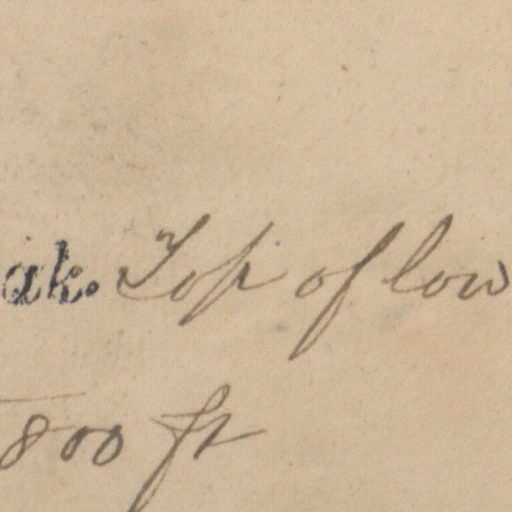 ak. Top of low
800 ft